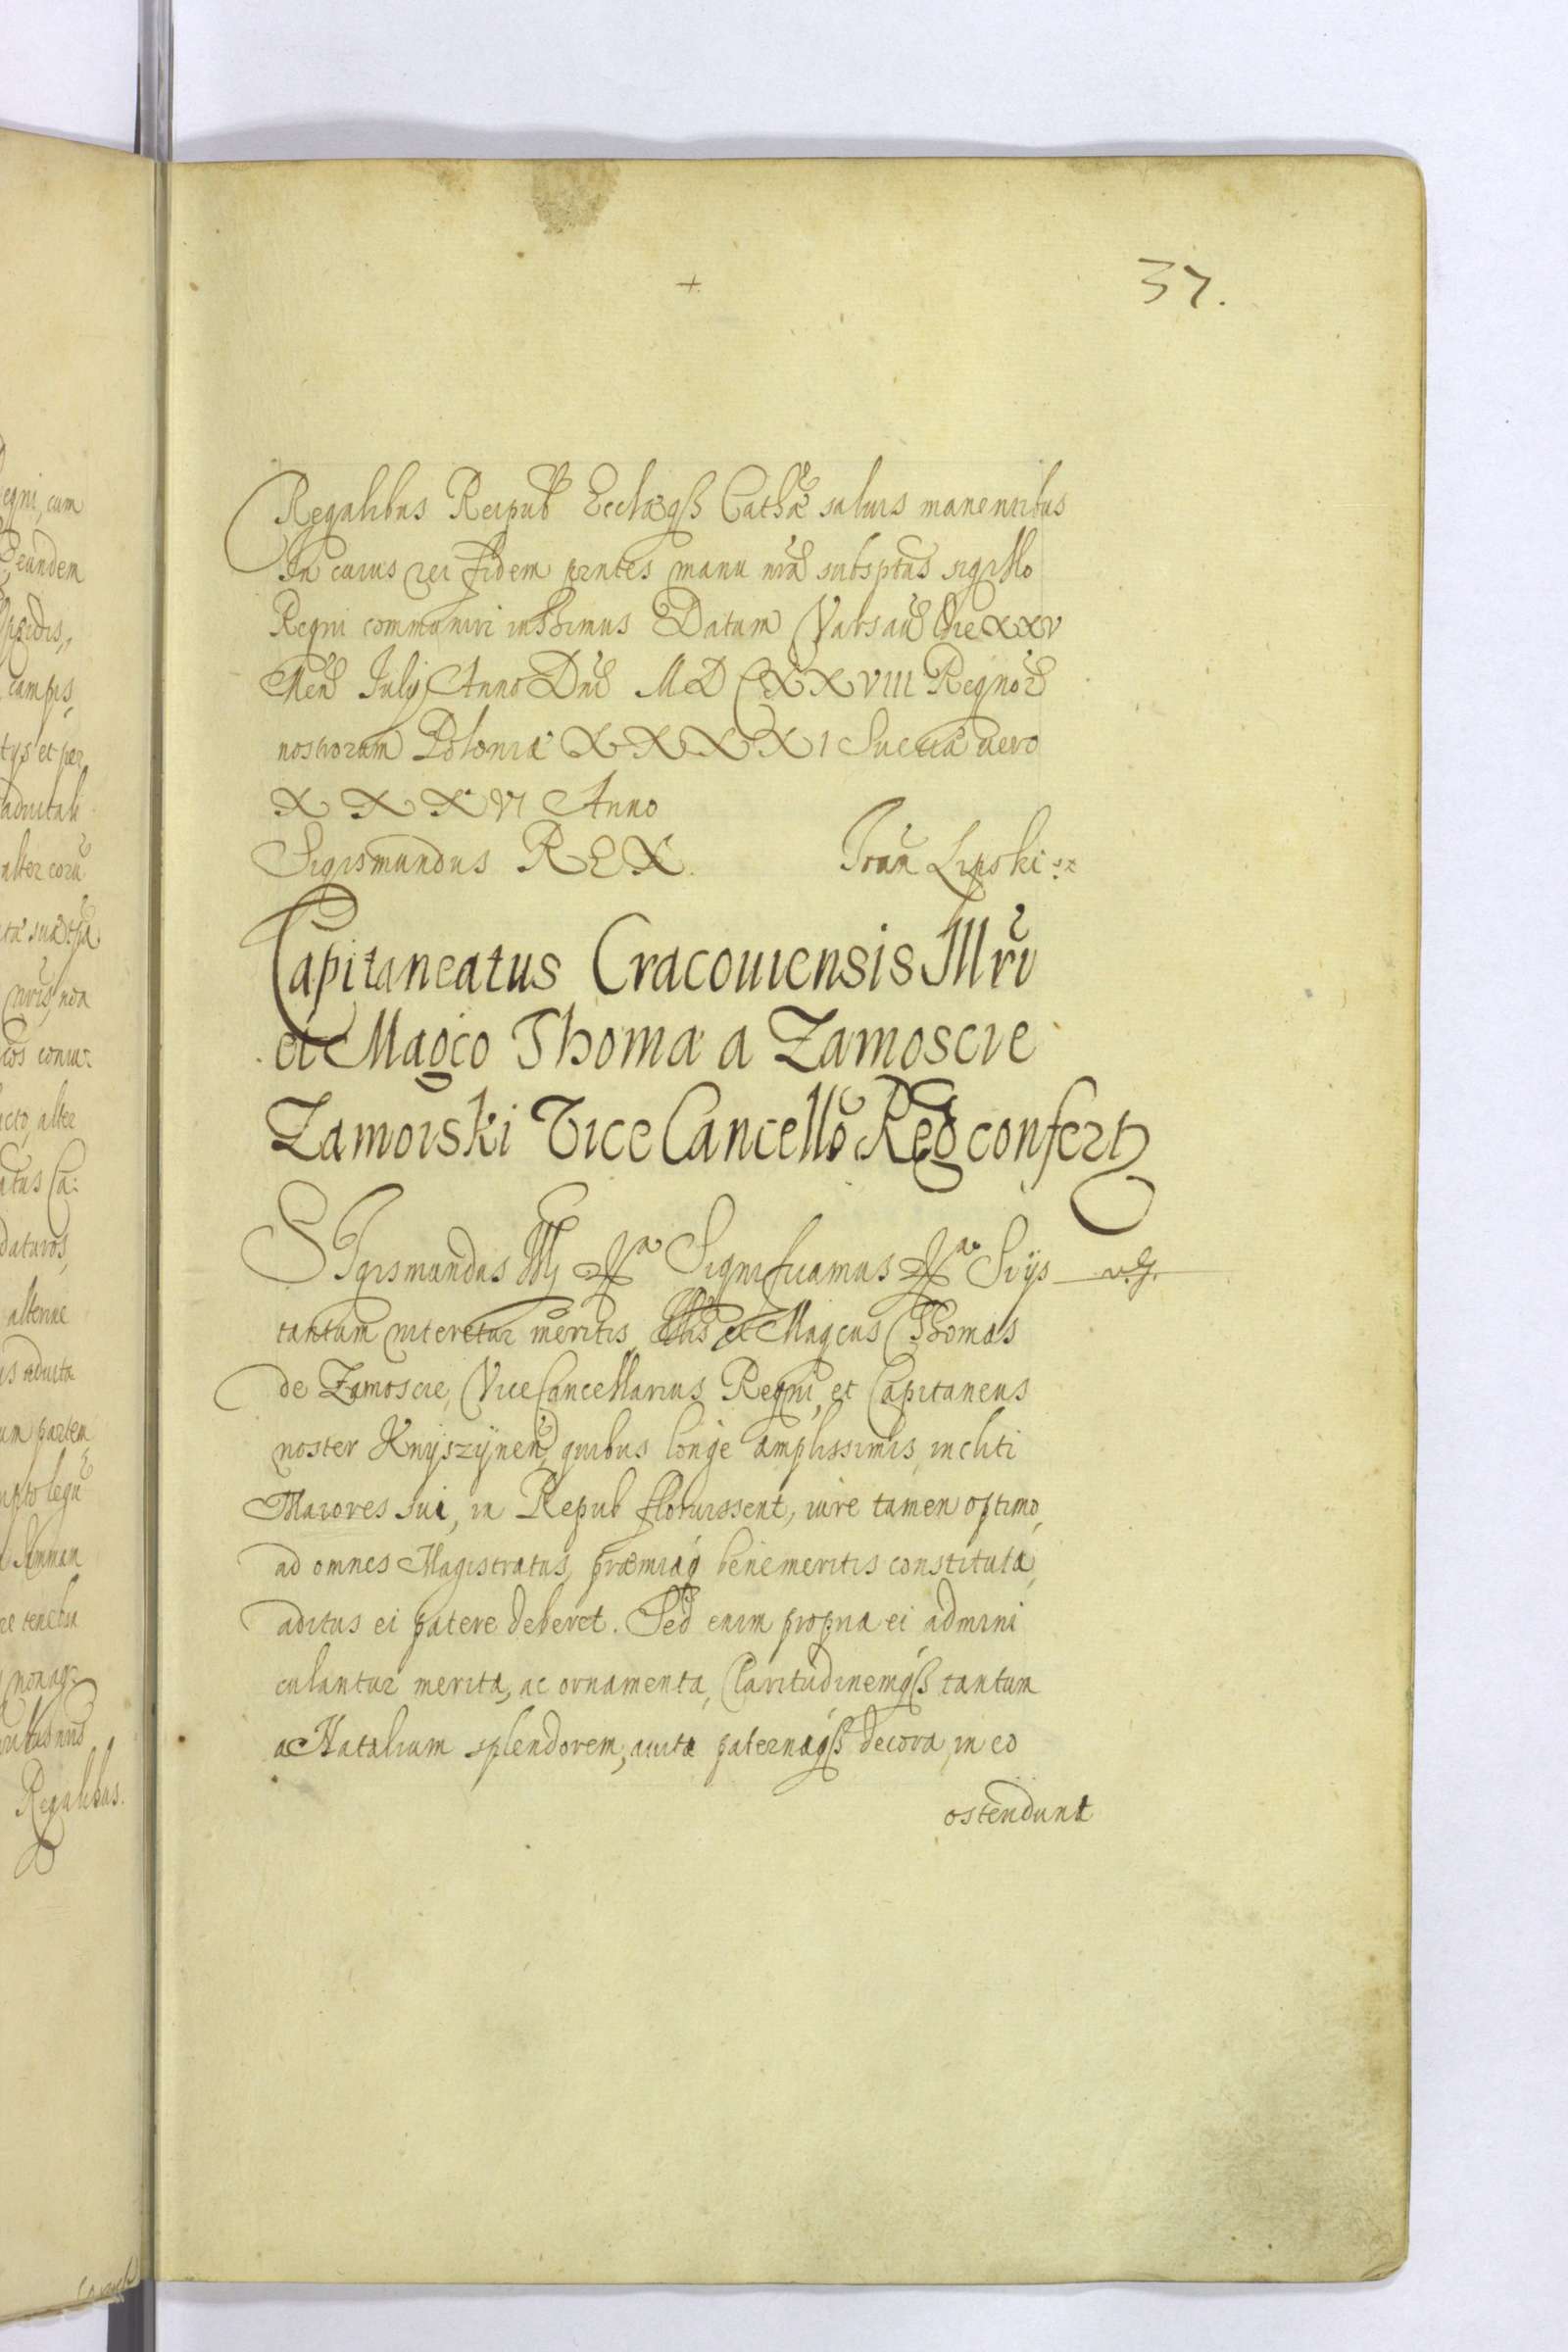 37.
Regalibus Reipub Ecclæqß Cathæ saluis manentibus
In cuius rei fidem prntes manu nrã subsptas sigillo
Regni communiri iussimus Datum Varsau die XXV
Mens July Anno Dni MDCXXVIII Regnor
nostrorum Poloniæ XXXXI Sueciæ uero
XXXVI Anno
Sigismundus REX. Fran Lipski
Capitaneatus Cracouiensis Illri
et Magco Thomæ a Zamoscie
Zamoiski Vice Cancello Reg confert
Sigismundus Significamus Siijs
tantum niteretur meritis Illis et Magcus Thomas
de Zamoscie, ViceCancellarius Regni, et Capitaneus
noster Knyszÿnen, quibus longe amplissimis, incliti
Maiores sui, in Repub floruissent, iure tamen optimo,
ad omnes Magistratus, præmiaq benemeritis constituta,
aditus ei patere deberet. Sed enim propria ei admini
culantur merita, ac ornamenta, Claritudinemqß tantum
a Natalium splendorem, auita paternaqß decora, in eo
ostendunt